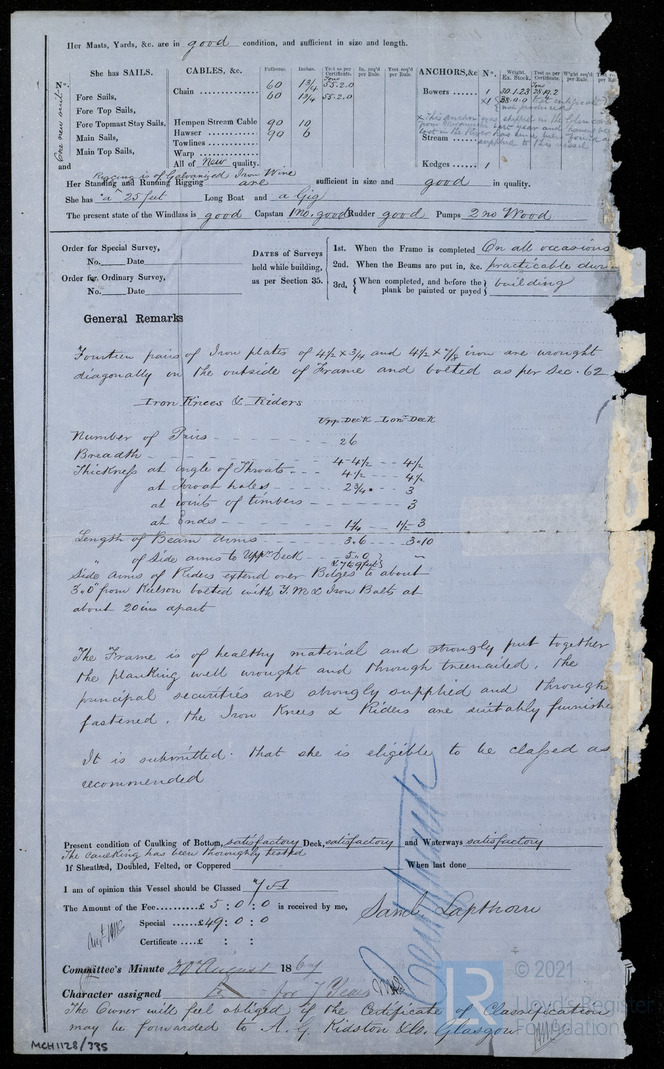 Her Masts, Yards, &c. are in good condition, and sufficient in size and length.
She has SAILS. CABLES, &c. Fathoms. Inches. Test as per Certificate. In. req'd per Rule. Test req'd per Rule. ANCHORS, &c. No. Weight. Ex. Stock. Test as per Certificate. W'ght req'd per Rule.
One new suit
Fore Sails, Chain 60 1 3/4 Tons 55.2.0 Bowers 1 30.1.23
Fore Top Sails, 60 1 3/4 55.2.0
Fore Topmast Stay Sails, Hempen Stream Cable 90 10
Main Sails, Hawser 90 6 Stream
Main Top Sails, Towlines
Warp
and All of New quality. Kedges 1
Rigging is of Galvanized Iron Wire
Her Standing and Running Rigging are sufficient in size and good in quality.
She has "a" 25 feet Long Boat and a Gig
The present state of the Windlass is good Capstan good Rudder good Pumps 2 no Wood
Order for Special Survey,
No. Date
Order for Ordinary Survey,
No. Date
DATES of Surveys held while building, as per Section 35.
1st. When the Frame is completed On all occasions
2nd. When the Beams are put in, &c. practicable
3rd, { When completed, and before the plank be painted or payed } building
General Remarks
Fourteen pairs of Iron plates of 4 1/2 x 3/4 and 4 1/2 x 7/8 iron are wrought
diagonally on the outside of Frame and bolted as per Sec. 62
Iron Knees & Riders
Upp Deck Low Deck
Number of Pairs 26
Breadth 4-4 1/2 4 1/2
Thickness at angle of Throats 4 1/2 4 1/2
at throat holes 2 3/4 3
at joints of timbers 3
at Ends 1 1/4 1 1/2 3
Length of Beam Arms 3.6 3.10
" of Side arms to Upp Deck 5.0
Side Arms of Riders extend over Bilges to about
3.0 from Keelson bolted with Y.M & Iron Bolts at
about 20 ins apart
The Frame is of healthy material and strongly put together
the planking well wrought and through treenailed, the
principal securities are strongly supplied and through
fastened, the Iron Knees & Riders are suitably
It is submitted that she is eligible to be classed as
recommended
Present condition of Caulking of Bottom, satisfactory Deck, satisfactory and Waterways satisfactory
The caulking has been thoroughly tested
If Sheathed, Doubled, Felted, or Coppered When last done
I am of opinion this Vessel should be Classed 7 A
The Amount of the Fee £ 5 : 0 : 0 is received by me,
Special £ 49 : 0 : 0 Saml Lapthorn
Certificate £ : :
Committee's Minute 30 August 1867
Character assigned for 7 Years
The Owner will feel obliged if the Certificate of Classification
may be forwarded to A. G. Kidston & Co. Glasgow
MCH1128/335
LR © 2021
Lloyd's Register
Foundation